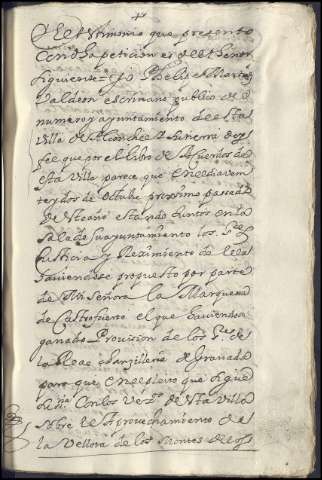 El testimonio que presento
Con dha peticion es del thenor
siguiente = yo Phelis Martin
Valdeon escrivano publico de el
numero y ayuntamiento de esta
Villa de y su tierra doy
fee que por el libro de Acuerdos de
esta Villa parece que en el dia vein
te y dos de octubre proximo passado
de este año estando Juntos en la
sala de su ayuntamiento los Sres
Justicia y Reximiento de ella
haviendose propuesto por parte
de Mi Señora la Marquesa
de Castrofuerte el que haviendose
ganado Provision de los Sres de
la Real Chanzilleria de Granada
para que en el pleyto que sigue
dha Con los Vezos de esta Villa
sobre el Aprovechamiento de
la Vellota de los Montes de